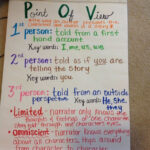 Point Of View
1st person: told from a first
hand account
Key words: I, me, us, we
2nd person: told as if you are
telling the story
Key words: you
3rd person: told from an outside
perspective Key words: He, She, they
• Limited: narrator only knows the
thoughts & feelings of one character.
• Omniscient: Narrator knows everything
about all characters,
from character to character